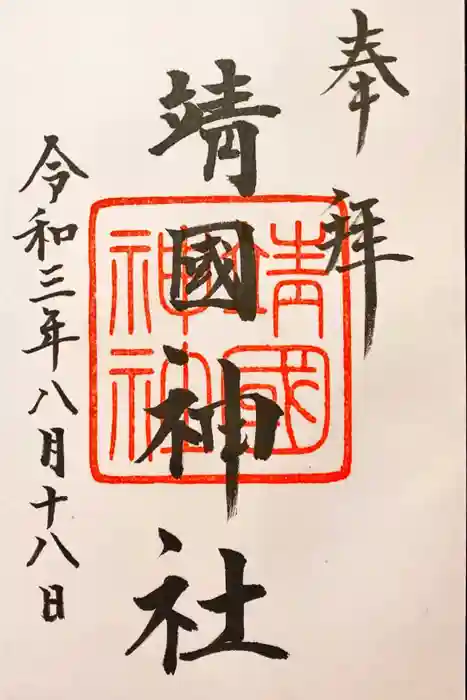 奉拝
靖國神社
靖國神社
令和三年八月十八日